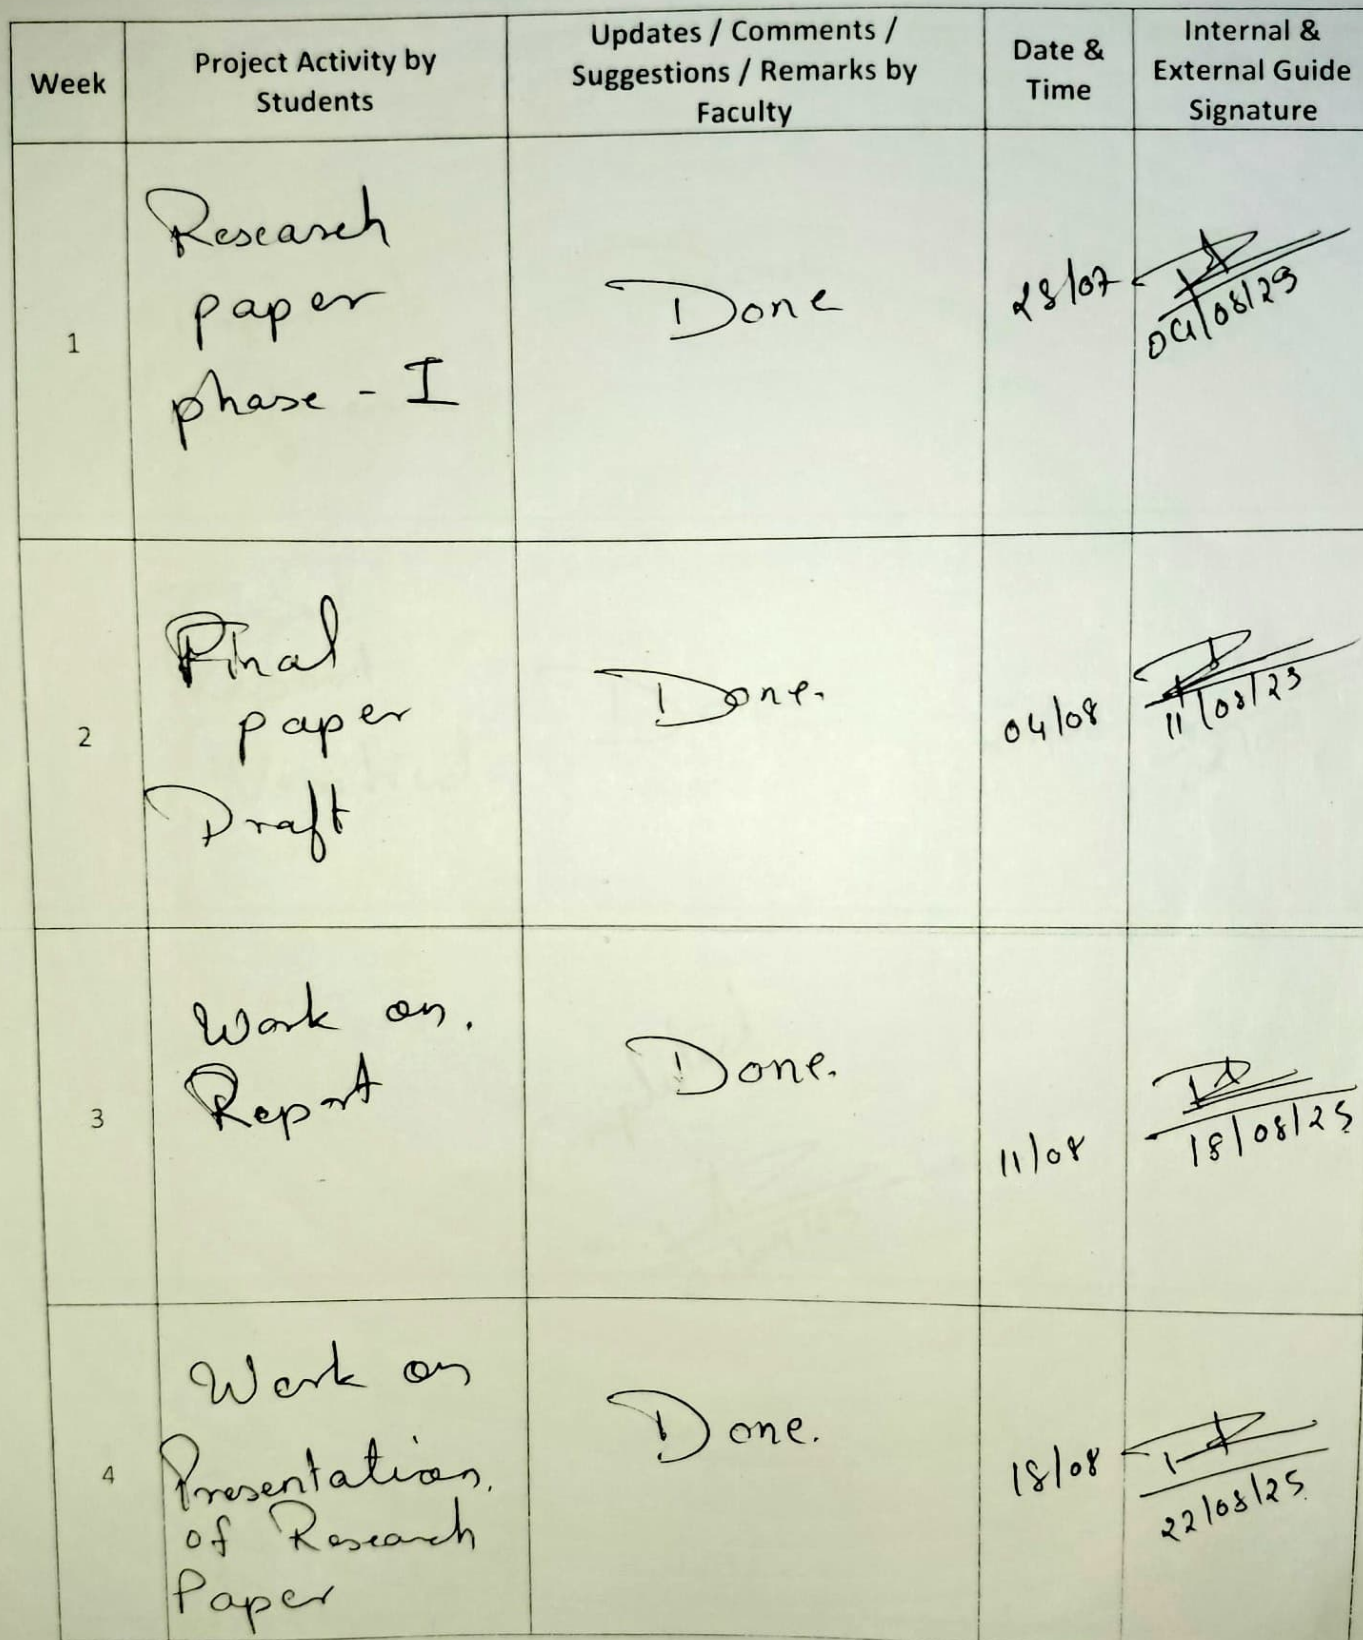 Week
Project Activity by
Students
Updates / Comments /
Suggestions / Remarks by
Faculty
Date &
Time
Internal &
External Guide
Signature
1
Research
paper
phase - I
Done
28/07
04/08/25
2
Final
paper
Draft
Done.
04/08
11/08/25
3
Work on.
Report
Done.
11/08
18/08/25
4
Work on
Presentation.
of Research
Paper
Done.
18/08
22/08/25